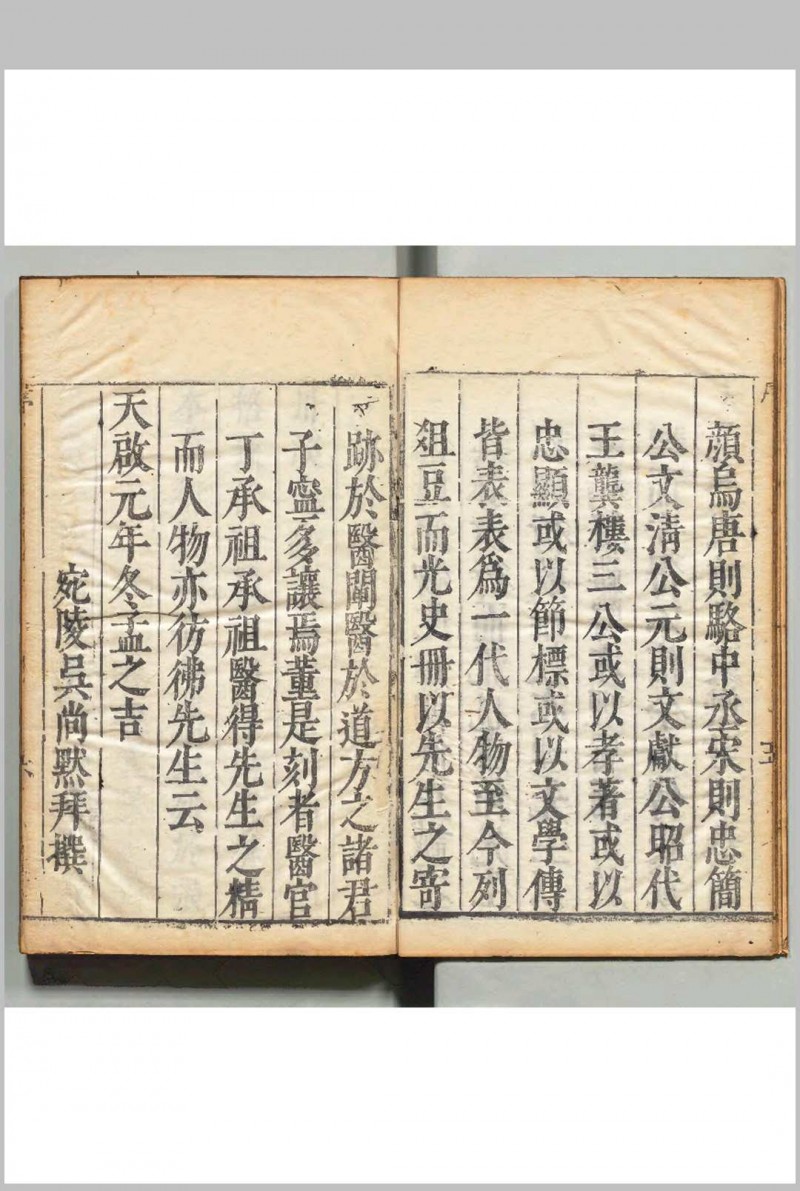 顏烏唐則駱中丞宋則忠簡
公文清公元則文獻公昭代
王龔樓三公或以孝著或以
忠顯或以節標或以文學傳
皆表表爲一代人物至今列
俎豆而光史冊以先生之寄
跡於醫闡醫於道方之諸君
子寧多讓焉董是刻者醫官
丁承祖承祖醫得先生之精
而人物亦彷彿先生云
天啟元年冬孟之吉
宛陵吳尚默拜撰